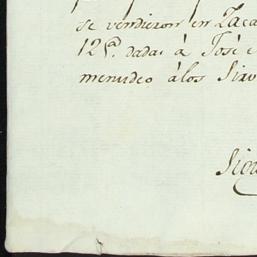 se vendieron en Zaca
12 ps. dadas à José
menudeo àlos Sirv